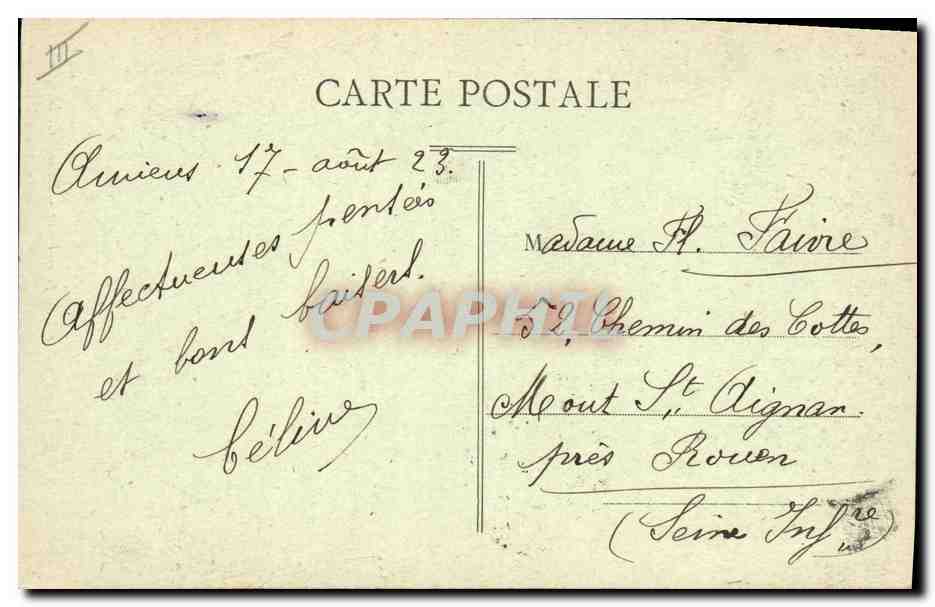 III
CARTE POSTALE
Amiens. 17 - août 23.
Affectueuses pensées
et bons baisers.
Céline
Madame Fl. Faivre
52, Chemin des Cottes,
Mont St Aignan.
près Rouen
(Seine Infre)
CPAPHIL